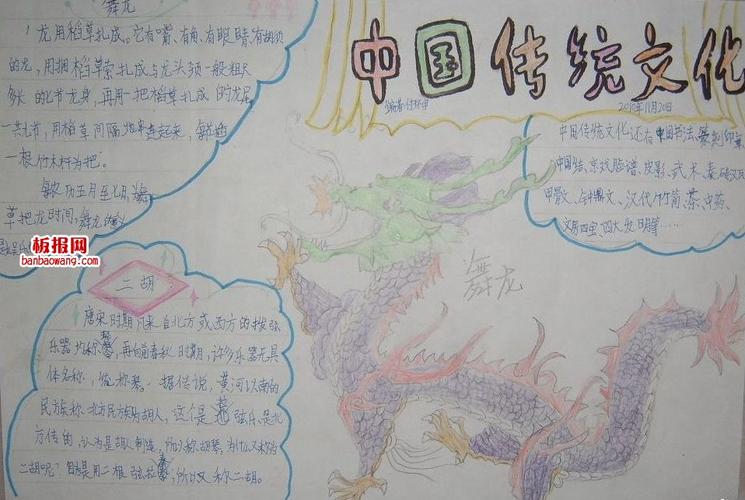 中国传统文化
舞龙
龙用稻草扎成。它有嘴、有角、有眼睛、有胡须
的龙，用捆稻草索扎成与龙头颈一般粗大
多长的七节龙身，再用一把稻草扎成的龙尾
一共七节，用稻草间隔
一根竹木杆为把。
每农历五月至七月，
草把龙时间，舞龙的
板报网
banbaowang.com
二胡
唐宋时期凡来自北方或西方的拨弦
乐器均称琴，再向前春秋时期，许多乐器无具
体名称，统称琴。据传说，黄河以南的
民族称北方民族为胡人，这个是弦乐，是北
方传的，认为是胡人制造，所以称胡琴，为什么又称为
二胡呢？因为是用二根弦拉，所以又称二胡。
中国传统文化还有中国书法、篆刻印章、
中国结、京戏脸谱、皮影、武术、秦砖汉瓦
甲骨文、钟鼎文、汉代竹简、茶、中药、
文房四宝、四大发明等……
舞龙